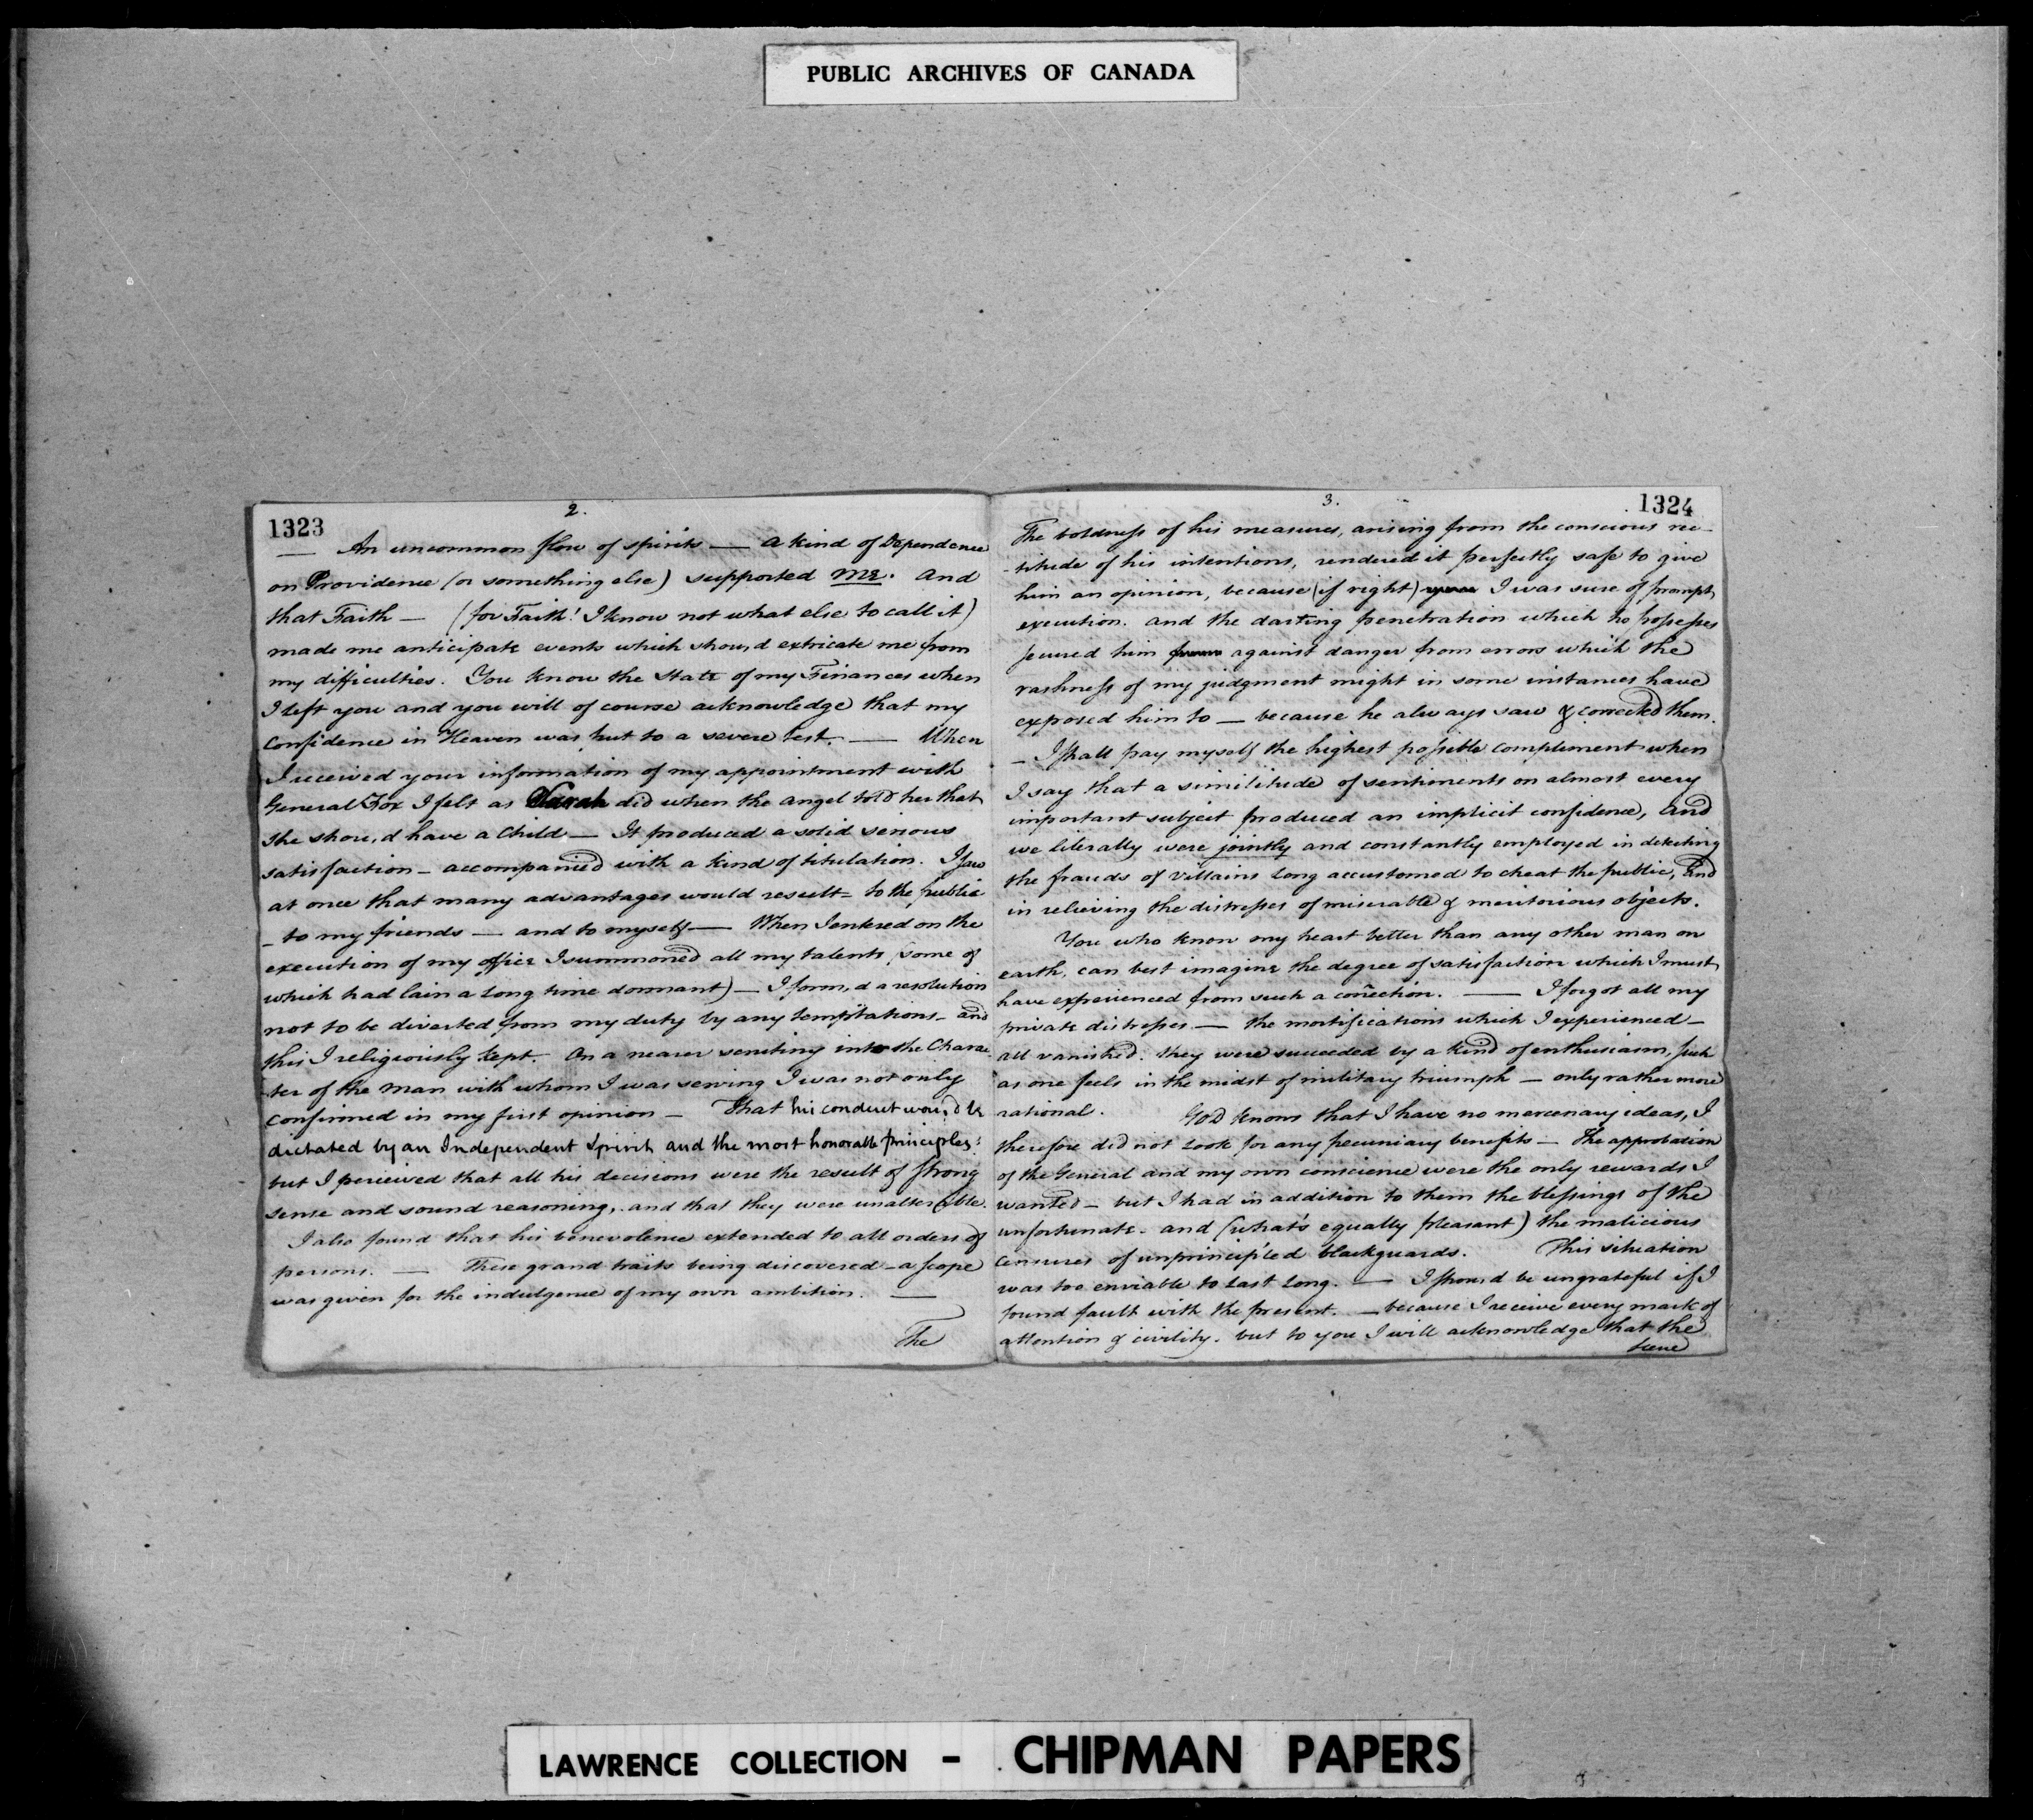 PUBLIC ARCHIVES OF CANADA
1323
2.
— An uncommon flow of spirits — a kind of Dependence
on Providence (or something else) supported me. and
that Faith — (for Faith! I know not what else to call it)
made me anticipate events which shou,d extricate me from
my difficulties. You know the State of my Finances when
I left you and you will of course acknowledge that my
Confidence in Heaven was put to a severe test. — When
I received your information of my appointment with
General Fox I felt as Sarah did when the angel told her that
she shou,d have a Child — It produced a solid serious
satisfaction — accompanied with a kind of titulation. I saw
at once that many advantages would result — to the public
— to my friends — and to myself — When I entered on the
execution of my office I summoned all my talents (some of
which had lain a long time dormant) — I form,d a resolution
not to be diverted from my duty by any temptations — and
this I religiously kept. On a nearer scrutiny into the Charac
ter of the man with whom I was serving I was not only
confirmed in my first opinion — That his conduct wou,d be
dictated by an Independent Spirit and the most honorable principles:
but I perceived that all his decisions were the result of strong
sense and sound reasoning, and that they were unalterable.
I also found that his benevolence extended to all orders of
persons. — These grand traits being discovered — a scope
was given for the indulgence of my own ambition. —
The
3.
1324
The boldness of his measures, arising from the conscious rec-
-titude of his intentions, rendered it perfectly safe to give
him an opinion, because (if right) I was sure of prompt
execution. and the darting penetration which he possesses
secured him from against danger from errors which the
rashness of my judgment might in some instances have
exposed him to — because he always saw & corrected them.
— I shall pay myself the highest possible complement when
I say that a similitude of sentiments on almost every
important subject produced an implicit confidence, and
we literally were jointly and constantly employed in detecting
the frauds of villains long accustomed to cheat the public, and
in relieving the distresses of miserable & meritorious objects.
You who know my heart better than any other man on
earth, can best imagine the degree of satisfaction which I must
have experienced from such a conection. — I forgot all my
private distresses — the mortifications which I experienced —
all vanished. they were succeeded by a kind of enthusiasm, such
as one feels in the midst of military triumph — only rather more
rational. God knows that I have no mercenary ideas, I
therefore did not look for any pecuniary benefits — The approbation
of the General and my own conscience were the only rewards I
wanted — but I had in addition to them the blessings of the
unfortunate. and (what's equally pleasant) the malicious
Censures of unprincipled blackguards. This situation
was too enviable to last long. — I shou,d be ungrateful if I
found fault with the present. — because I receive every mark of
attention & civility. but to you I will acknowledge that the
scene
LAWRENCE COLLECTION - CHIPMAN PAPERS